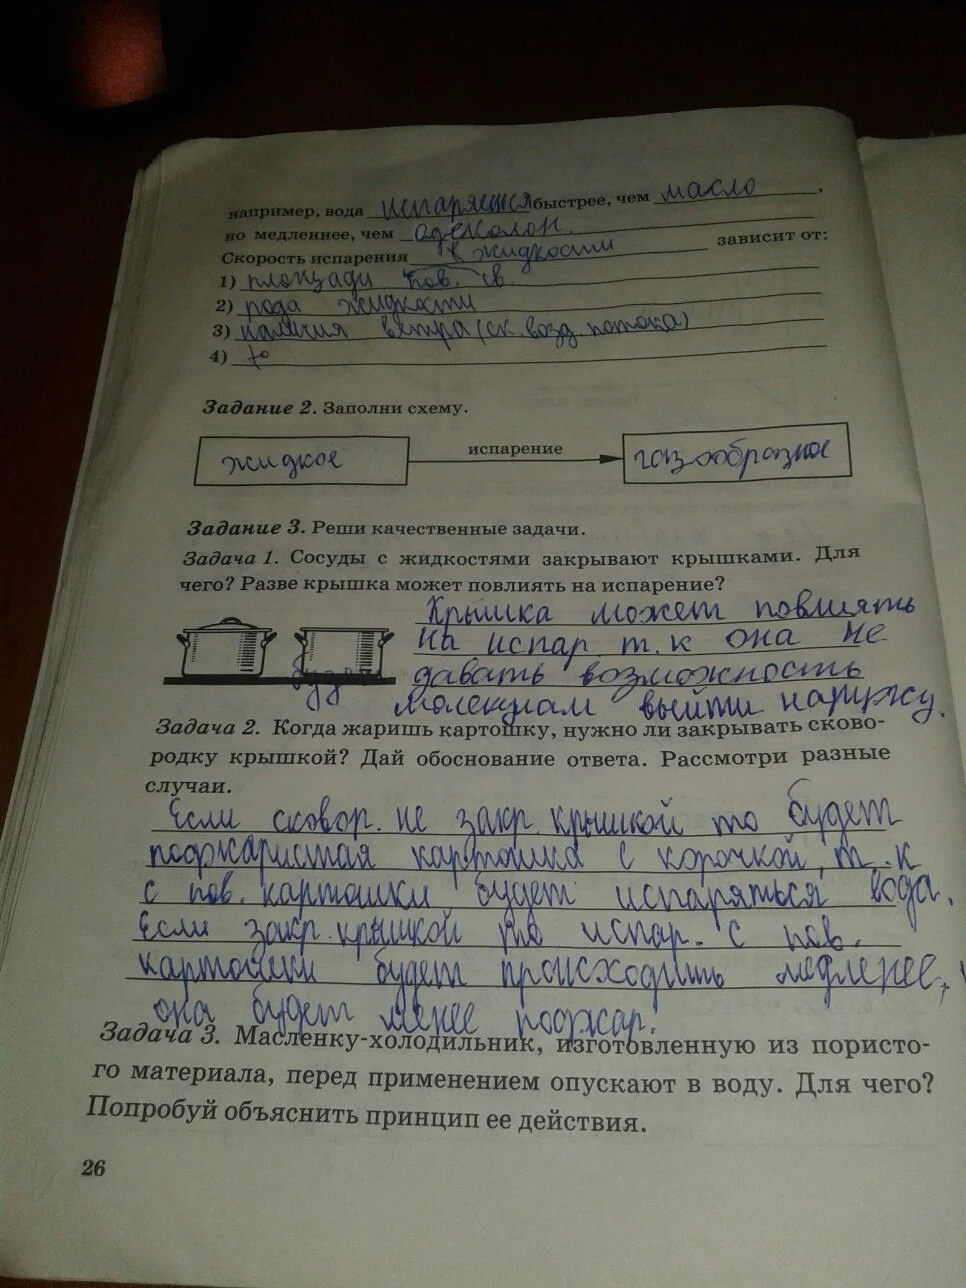 например, вода испаряется быстрее, чем масло,
но медленнее, чем одеколон.
Скорость испарения жидкости зависит от:
1) площади пов. св.
2) рода жидкости
3) наличия ветра (ск. возд. потока)
4) to
Задание 2. Заполни схему.
жидкое испарение газообразное
Задание 3. Реши качественные задачи.
Задача 1. Сосуды с жидкостями закрывают крышками. Для
чего? Разве крышка может повлиять на испарение?
Крышка может повлиять
на испар. т.к она не
будет давать возможность
молекулам выйти наружу.
Задача 2. Когда жаришь картошку, нужно ли закрывать сково-
родку крышкой? Дай обоснование ответа. Рассмотри разные
случаи.
Если сковор. не закр. крышкой то будет
поджаристая картошка с корочкой, т.к
с пов. картошки будет испаряться вода.
Если закр. крышкой то испар. с пов.
картошки будет происходить медленее,
она будет менее поджар.
Задача 3. Масленку-холодильник, изготовленную из пористо-
го материала, перед применением опускают в воду. Для чего?
Попробуй объяснить принцип ее действия.
26